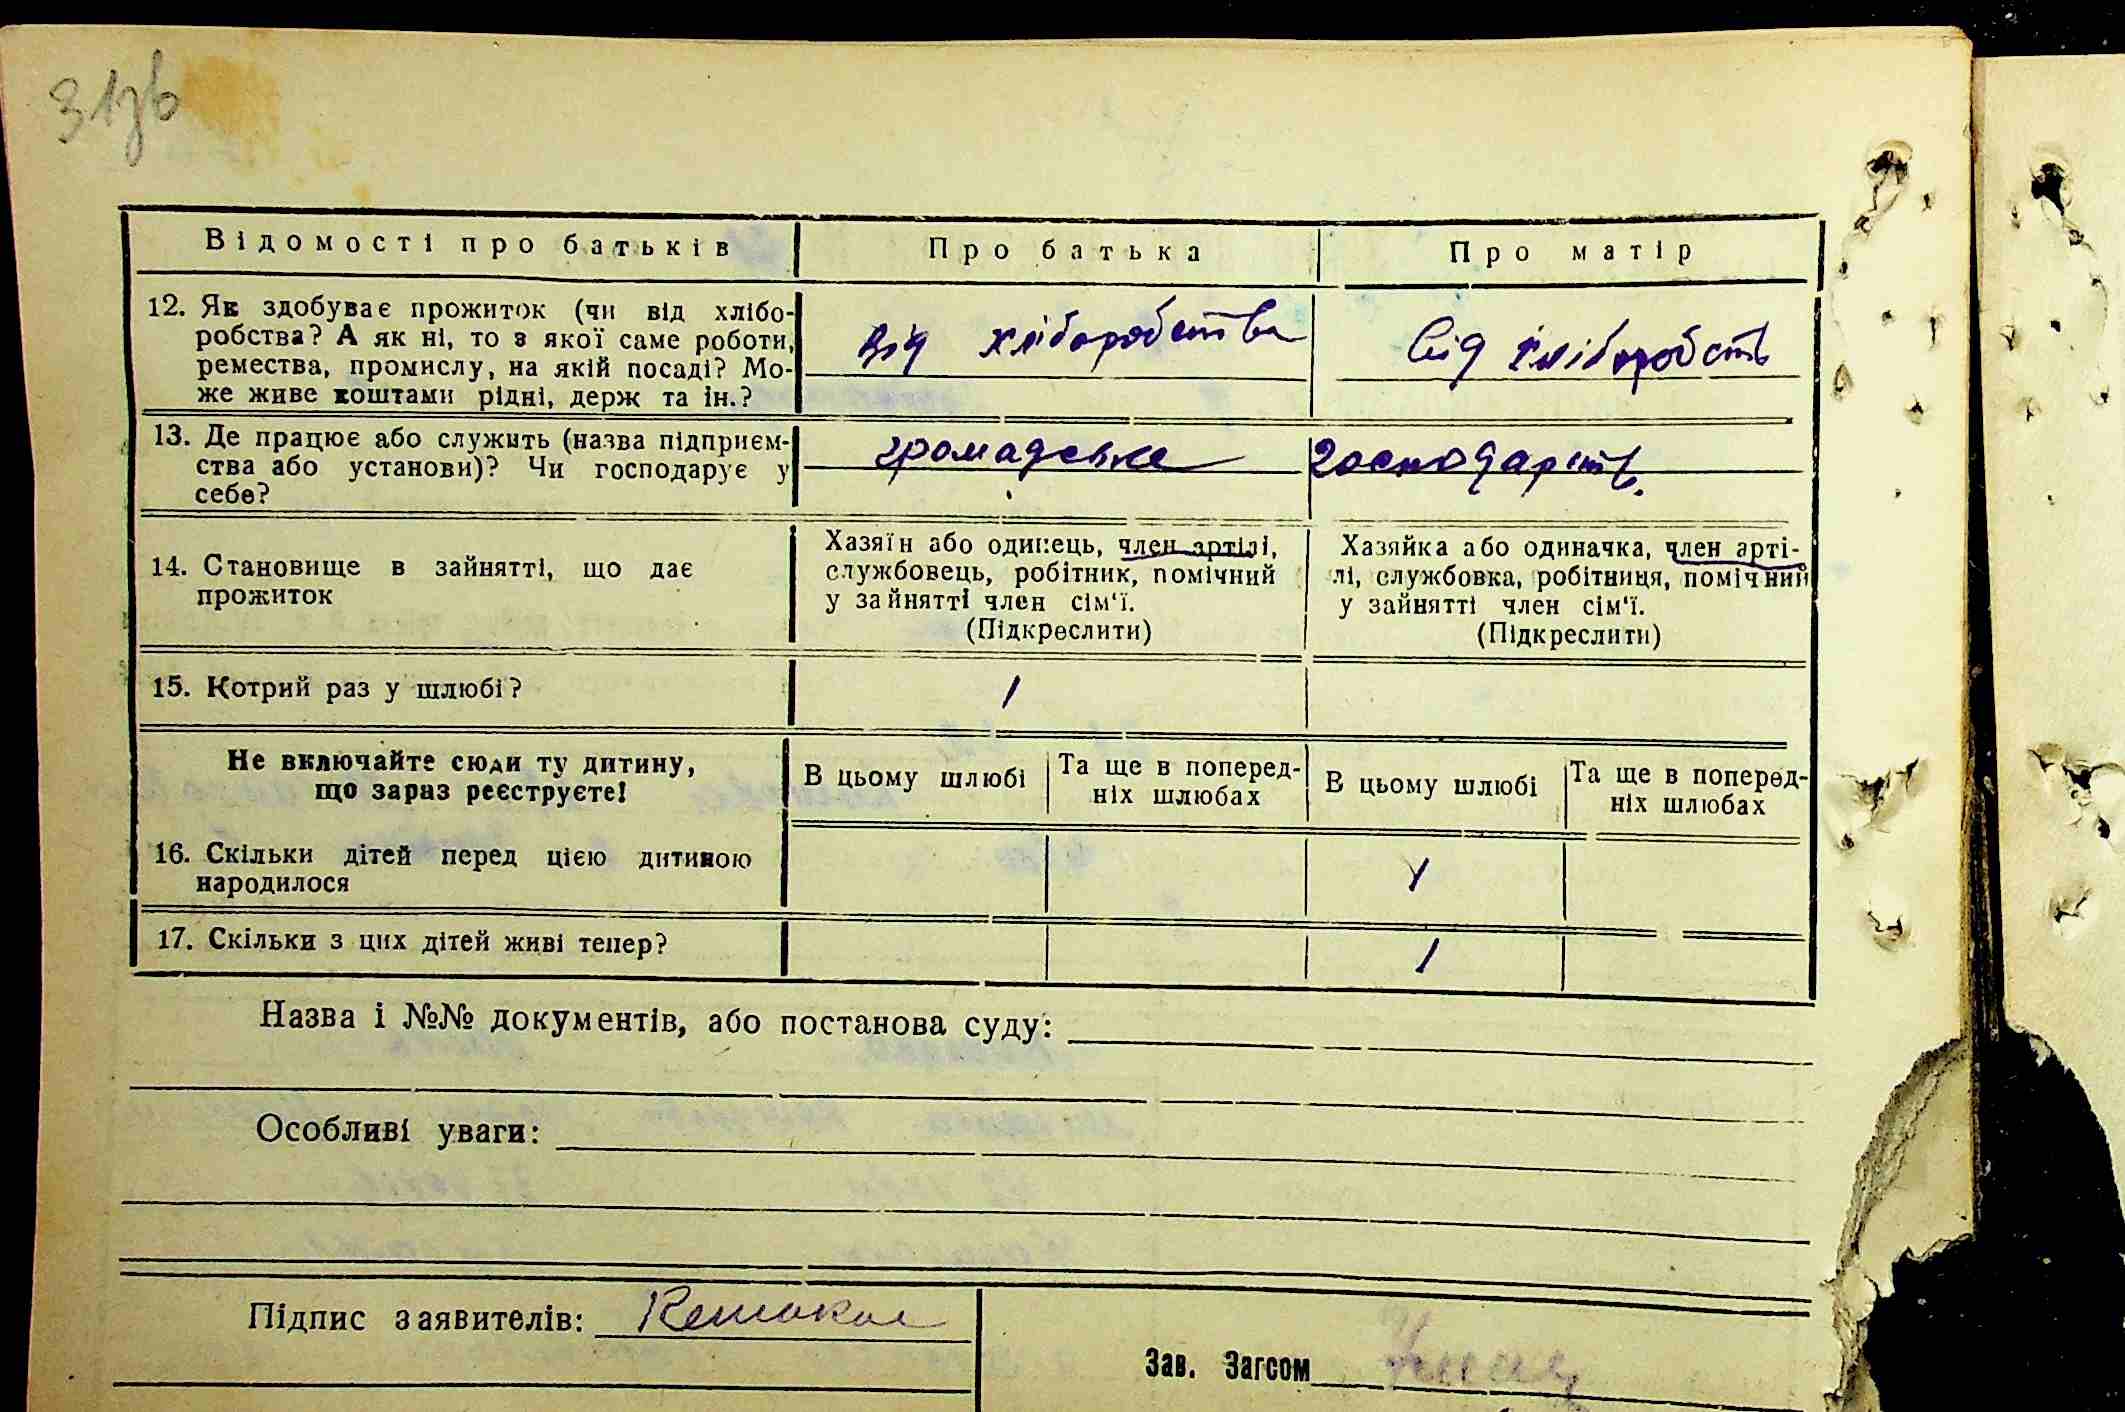 31зв
Відомості про батьків Про батька Про матір
12. Як здобуває прожиток (чи від хлібо-
робства? А як ні, то з якої саме роботи,
ремества, промислу, на якій посаді? Мо-
же живе коштами рідні, держ та ін.?
від хліборобства від хліборобств
13. Де працює або служить (назва підприєм-
ства або установи)? Чи господарує у
себе?
громадське господарств.
14. Становище в зайнятті, що дає
прожиток
Хазяїн або одинець, член артілі,
службовець, робітник, помічний
у зайнятті член сім'ї.
(Підкреслити)
Хазяйка або одиначка, член арті-
лі, службовка, робітниця, помічний
у зайнятті член сім'ї.
(Підкреслити)
15. Котрий раз у шлюбі? 1
Не включайте сюди ту дитину,
що зараз реєструєте!
В цьому шлюбі
Та ще в поперед-
ніх шлюбах
В цьому шлюбі
Та ще в поперед-
ніх шлюбах
16. Скільки дітей перед цією дитиною
народилося
1
17. Скільки з цих дітей живі тепер? 1
Назва і №№ документів, або постанова суду:
Особливі уваги:
Підпис заявителів:
Зав. Загсом